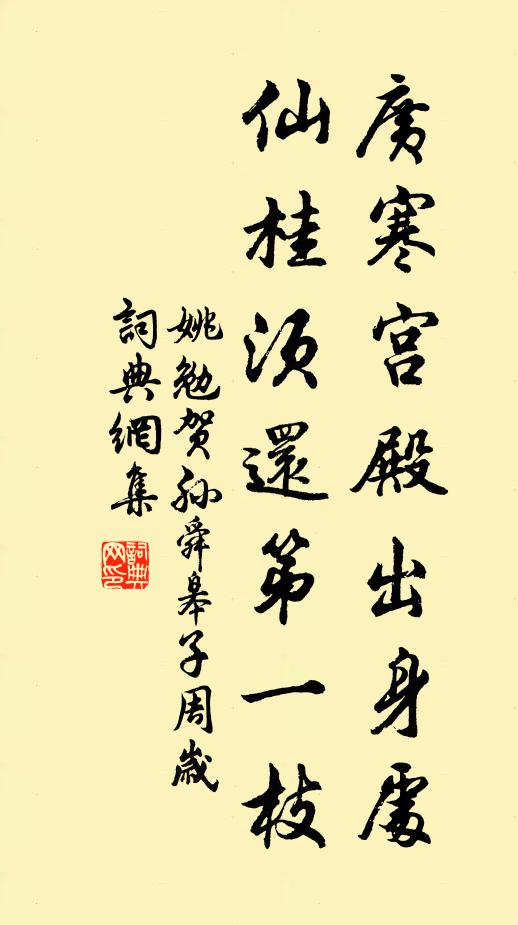 廣寒宮殿出身處
仙桂須還第一枝
姚勉賀孫舜皋子周歲
詞典網集
詞典網印